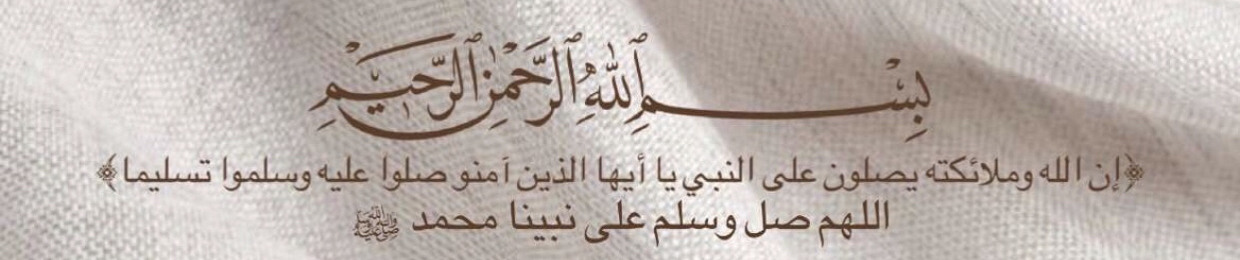 بِسْمِ ٱللَّهِ ٱلرَّحْمَٰنِ ٱلرَّحِيمِ
﴿إن الله وملائكته يصلون على النبي يا أيها الذين آمنو صلوا عليه وسلموا تسليما﴾
اللهم صل وسلم على نبينا محمد ﷺ